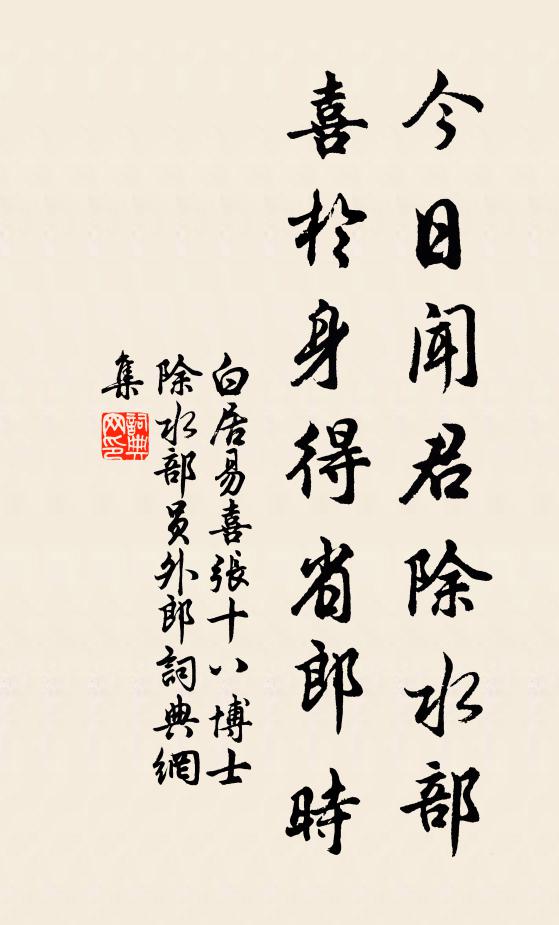 今日聞君除水部
喜於身得省郎時
白居易喜張十八博士
除水部員外郎詞典網
集
詞典網印